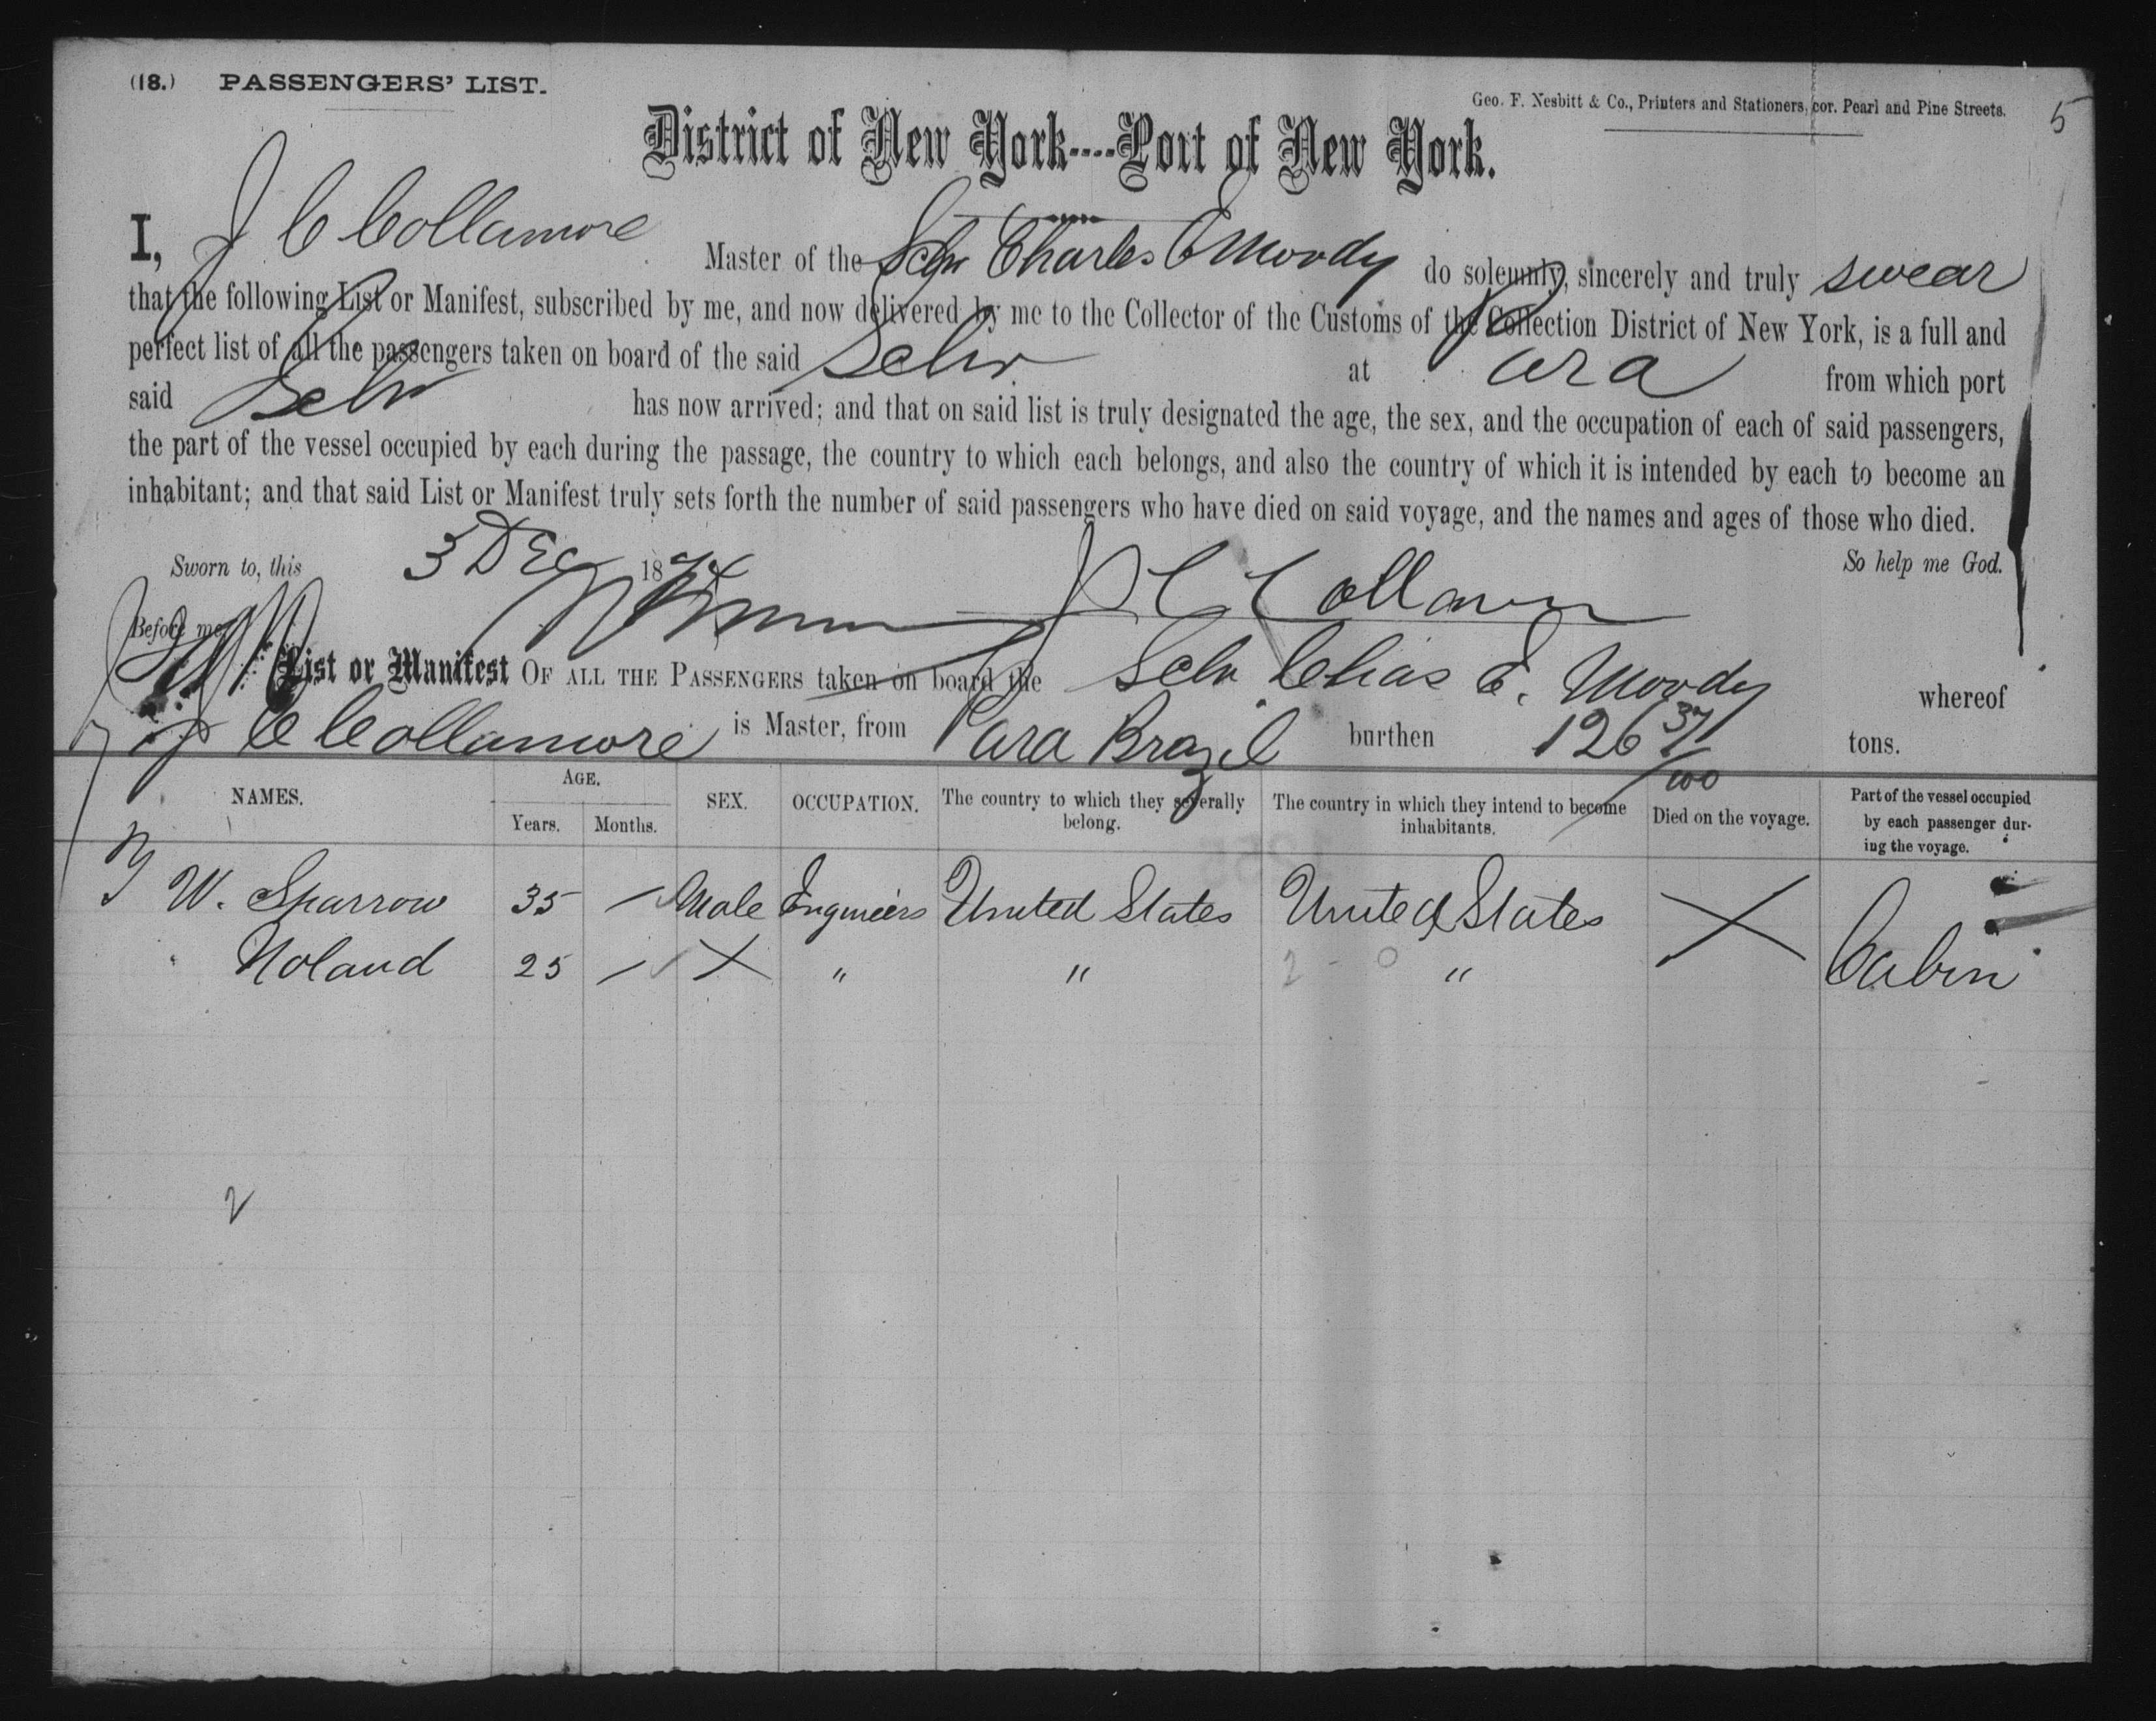 (18.) PASSENGERS' LIST.
Geo. F. Nesbitt & Co., Printers and Stationers, cor. Pearl and Pine Streets.
5
District of New York----Port of New York.
I, J C Collamore Master of the Schr Charles E Moody do solemnly, sincerely and truly swear
that the following List or Manifest, subscribed by me, and now delivered by me to the Collector of the Customs of the Collection District of New York, is a full and
perfect list of all the passengers taken on board of the said Schr at Para from which port
said Schr has now arrived; and that on said list is truly designated the age, the sex, and the occupation of each of said passengers,
the part of the vessel occupied by each during the passage, the country to which each belongs, and also the country of which it is intended by each to become an
inhabitant; and that said List or Manifest truly sets forth the number of said passengers who have died on said voyage, and the names and ages of those who died.
Sworn to, this 3 Dec 1874 So help me God.
Before me J C Collamore
List or Manifest OF ALL THE PASSENGERS taken on board the Schr Chas E. Moody whereof
J C Collamore is Master, from Para Brazil burthen 126 37/100 tons.
NAMES. AGE. Years. Months. SEX. OCCUPATION. The country to which they severally belong. The country in which they intend to become inhabitants. Died on the voyage. Part of the vessel occupied by each passenger during the voyage.
W. Sparrow 35 Male Engineers United States United States
Noland 25 " " " Cabin
2 - 0
2